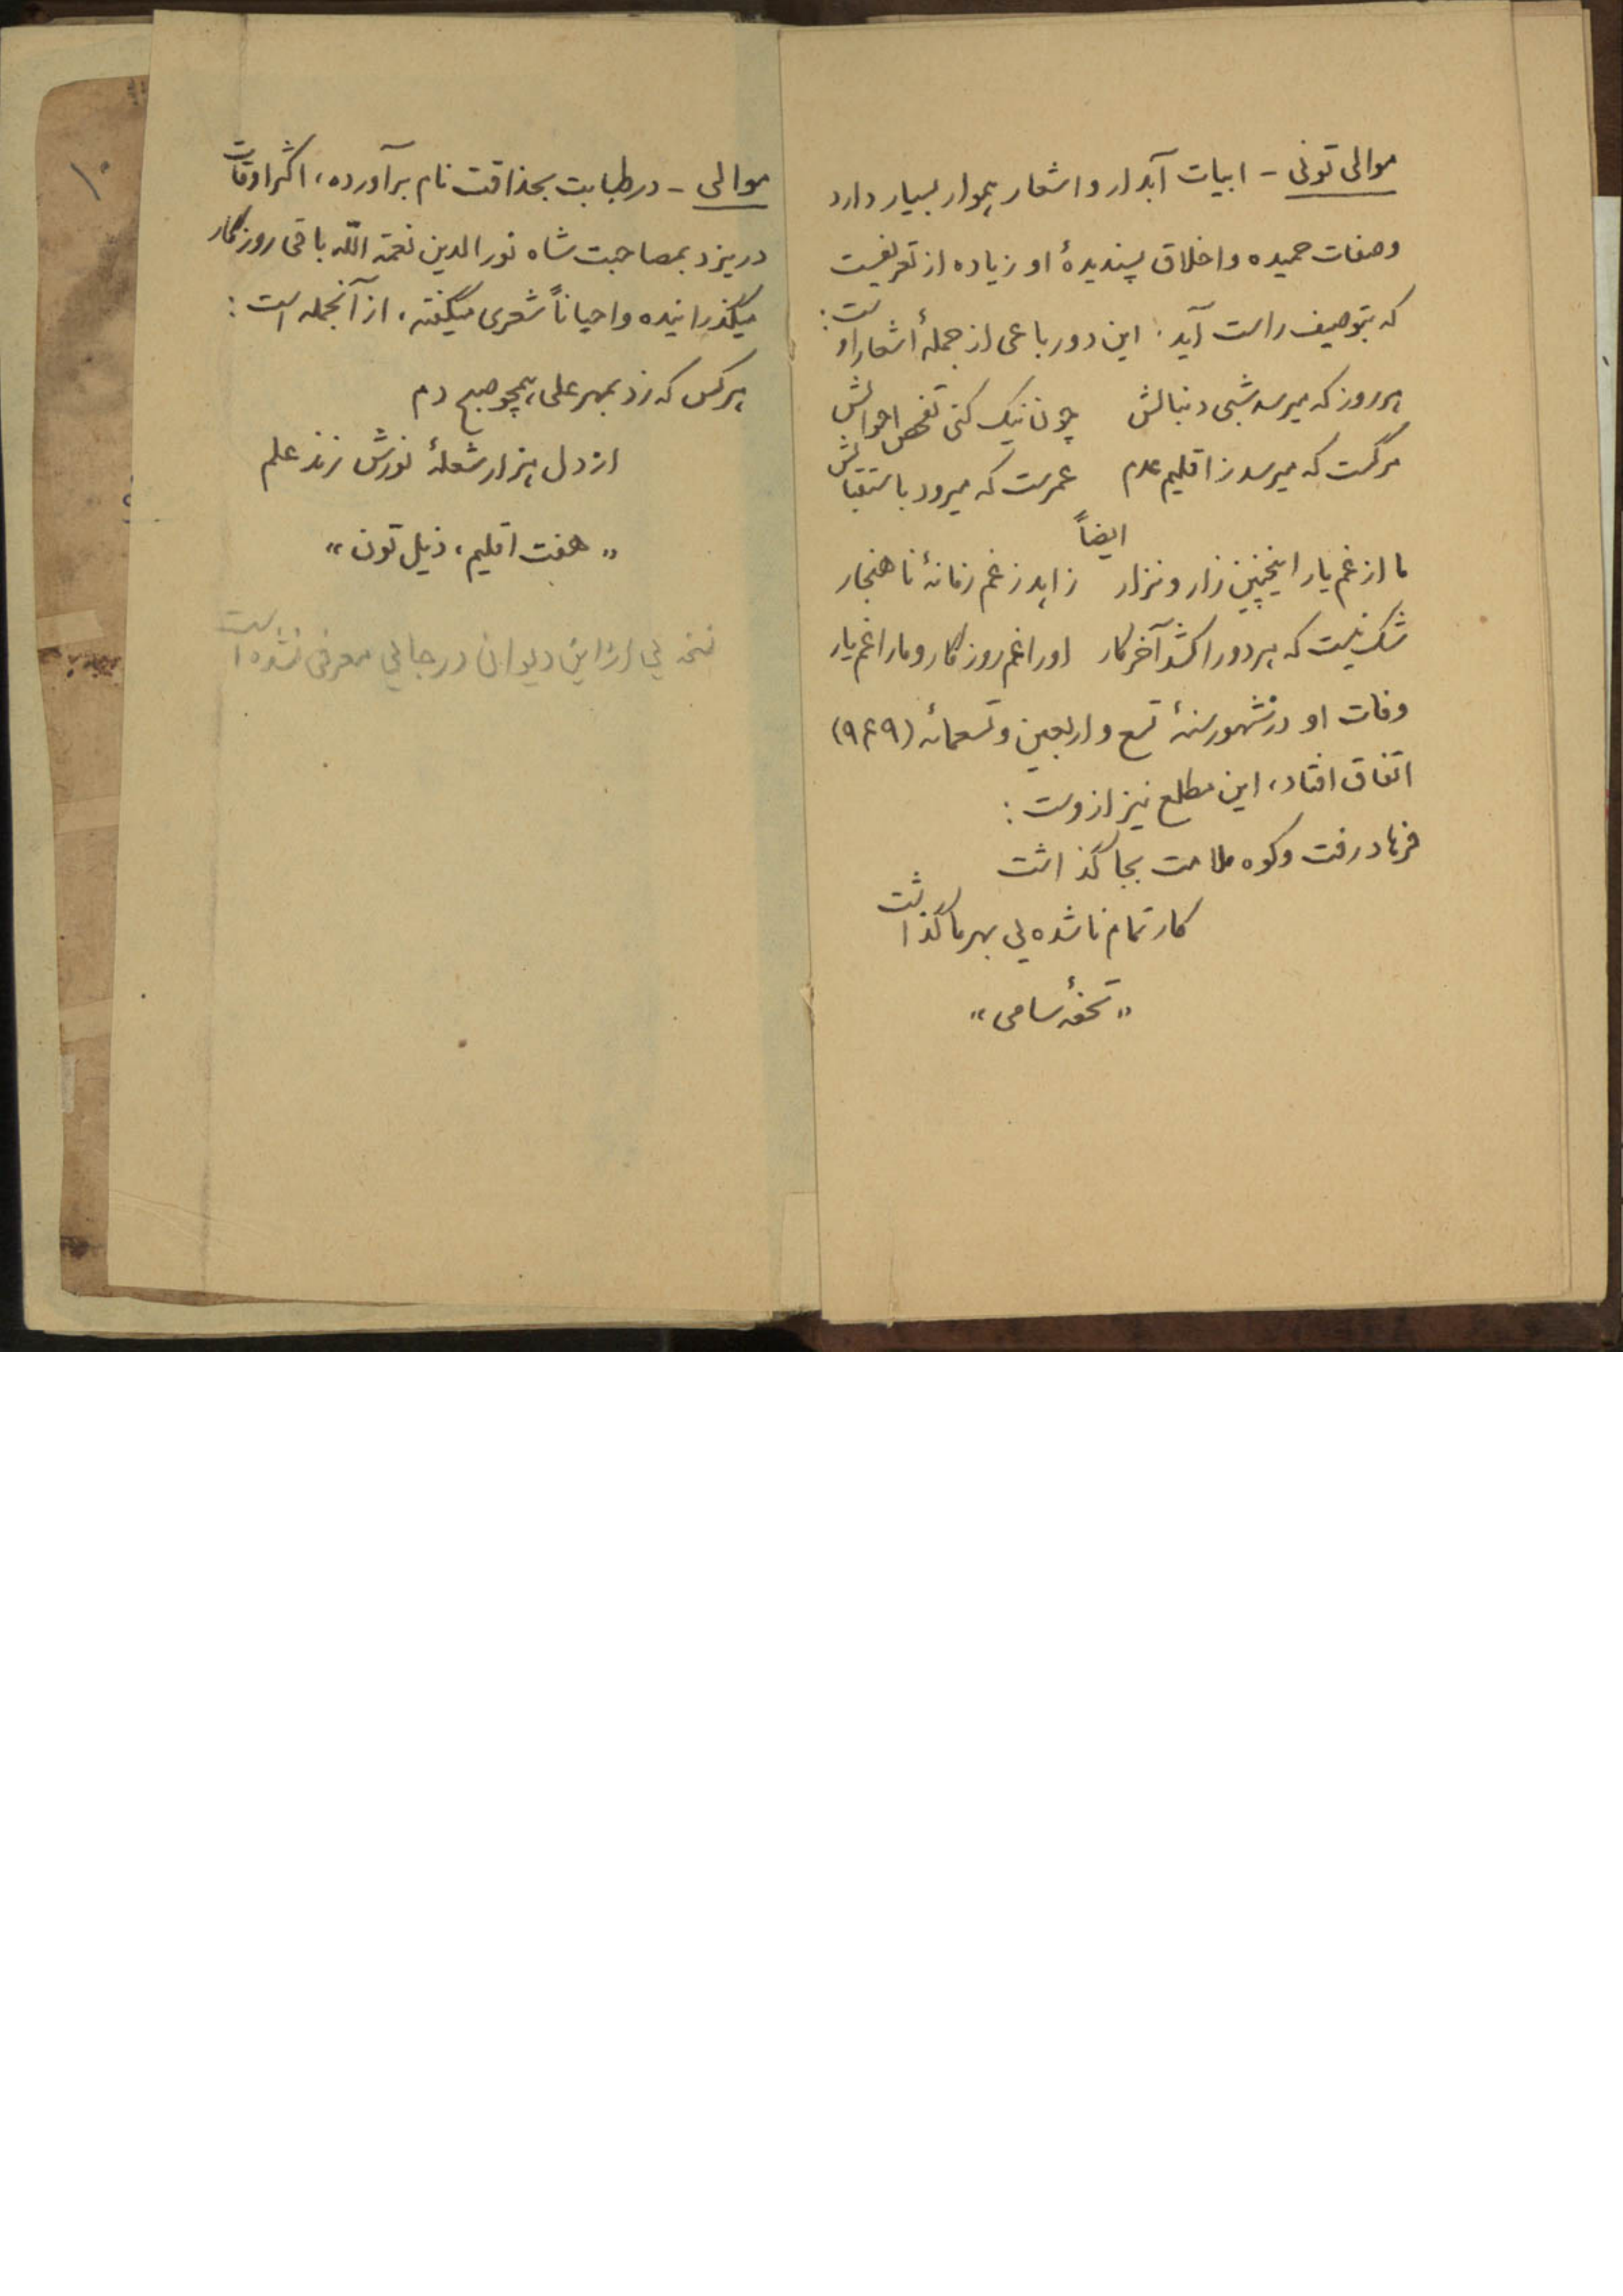 موالی تونی - ابیات آبدار و اشعار هموار بسیار دارد
وصفات حمیده و اخلاق پسندیدهٔ او زیاده از تعریفست
که بتوصیف راست آید. این دو رباعی از جملهٔ اشعار اوست:
هر روز که میرسد شبی دنبالش چون نیک کنی تفحص احوالش
مرگست که میرسد ز اقلیم عدم عمرست که میرود باستقبالش
ایضاً
ما از غم یار اینچنین زار و نزار زاهد ز غم زمانهٔ ناهنجار
شک نیست که هر دو را کشد آخر کار او را غم روزگار و ما را غم یار
وفات او در شهور سنهٔ تسع و اربعین و تسعمائه (۹۴۹)
اتفاق افتاد، این مطلع نیز ازوست:
فرهاد رفت و کوه ملامت بجا گذاشت
کار تمام ناشده یی بهر ما گذاشت
«تحفهٔ سامی»
موالی - در طبابت بحذاقت نام برآورده، اکثر اوقات
در یزد بمصاحبت شاه نورالدین نعمة اللّه باقی روزگار
میگذرانیده و احیاناً شعری میگفته، از آنجمله است:
هر کس که زد بمهر علی همچو صبح دم
از دل هزار شعلهٔ نورش زند علم
«هفت اقلیم، ذیل تون»
نسخه یی از این دیوان در جایی معرفی نشده است
۱۰